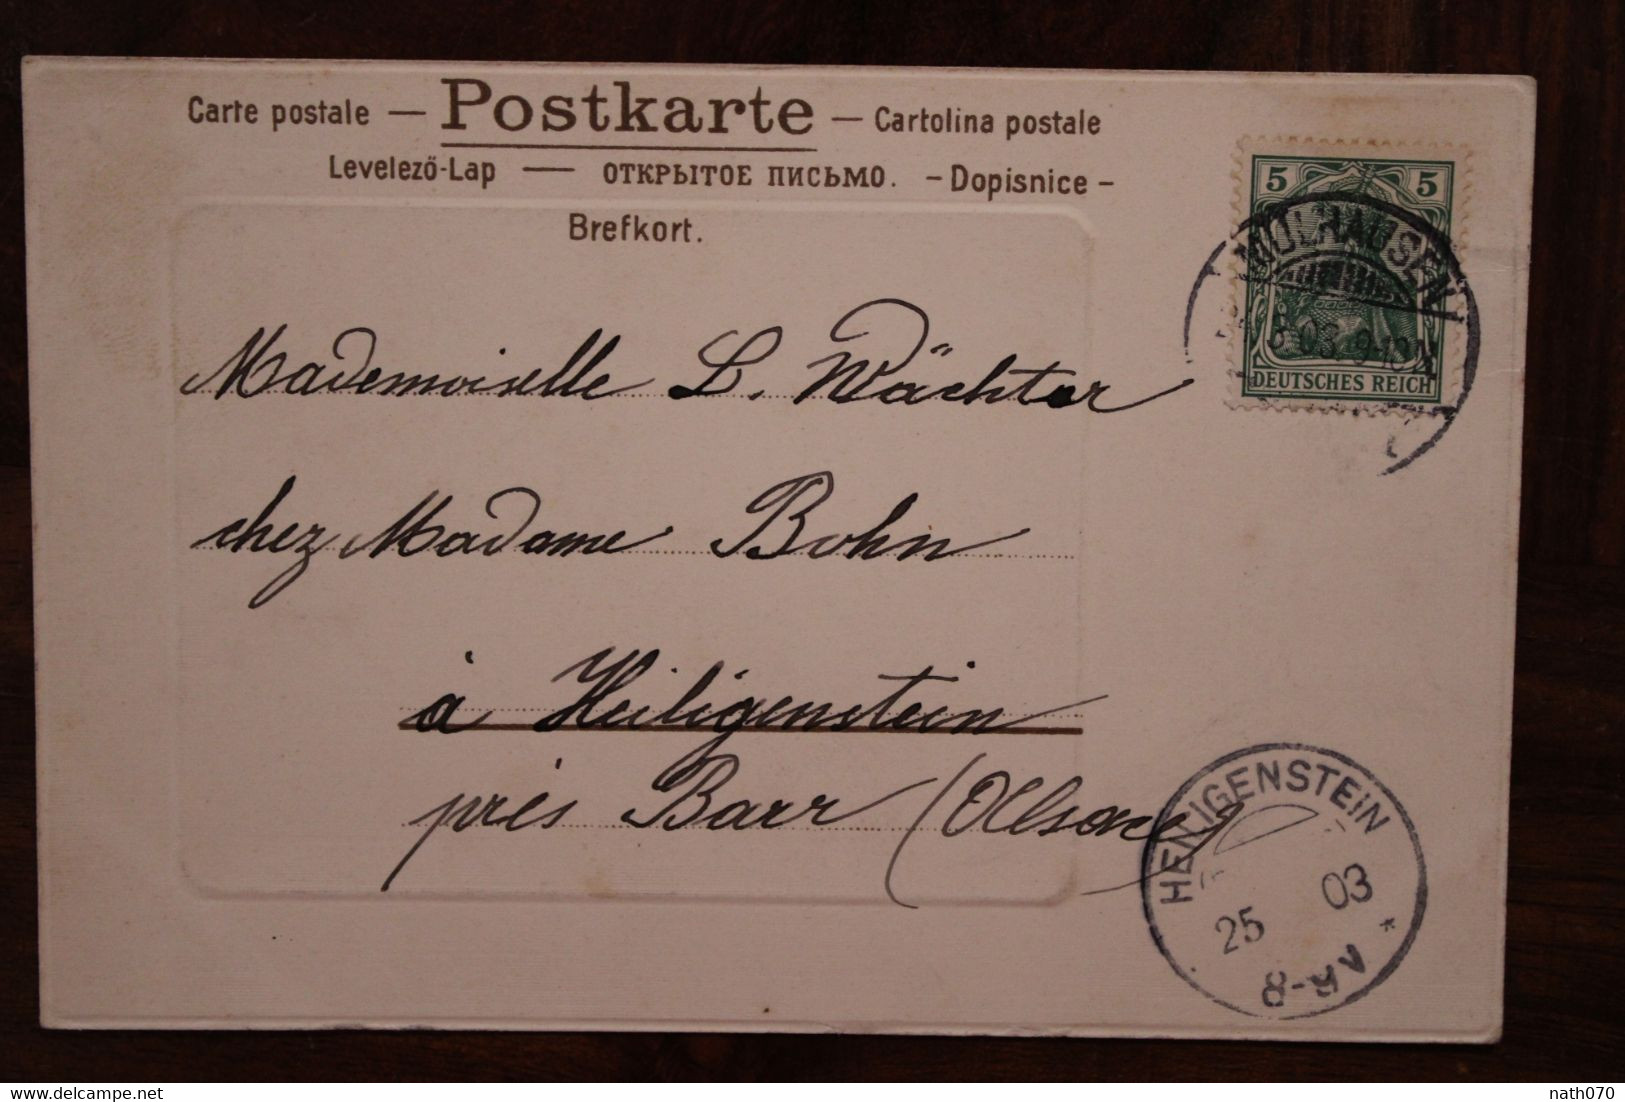 Carte postale — Postkarte — Cartolina postale
Levelező-Lap — ОТКРЫТОЕ ПИСЬМО. - Dopisnice -
Brefkort.
5 5
MÜLHAUSEN
8.03. 9-10 N
DEUTSCHES REICH
Mademoiselle L. Wächter
chez Madame Bohn
à Heiligenstein
près Barr (Alsace)
HEILIGENSTEIN
25 03
8-9V
*
delcampe.net
nath070